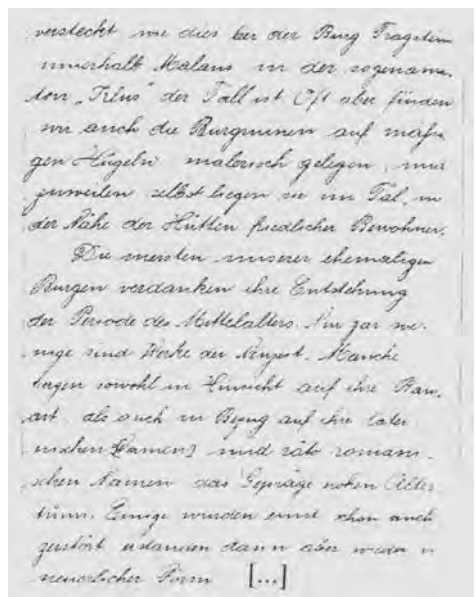 versteckt wie dies bei der Burg Fragstein
innerhalb Malans in der sogenann-
ten „Klus" der Fall ist. Oft aber finden
wir auch die Burgruinen auf mäßi-
gen Hügeln malerisch gelegen, und
zuweilen selbst liegen sie im Tal, in
der Nähe der Hütten friedlicher Bewohner.
Die meisten unserer ehemaligen
Burgen verdanken ihre Entstehung
der Periode des Mittelalters. Nur gar we-
nige sind Werke der Neuzeit. Manche
tragen sowohl in Hinsicht auf ihre Bau-
art, als auch in Bezug auf ihre latei-
nischen [Namen] und rät romani-
schen Namen das Gepräge hohen Alter-
tums. Einige wurden einst schon auch
zerstört erstanden dann aber wieder in
neuerlicher Form [...]